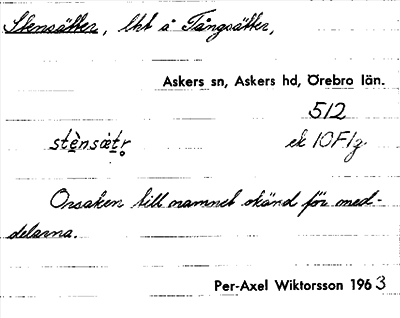 Stensätter, lht å Tångsätter,
Askers sn, Askers hd, Örebro län.
512
stènsȧtr̥ ek 10F1g.
Orsaken till namnet okänd för med-
delarna.
Per-Axel Wiktorsson 1963